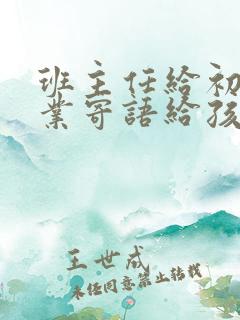 班主任給初
業寄語給孩
王世成
未經同意禁止轉載